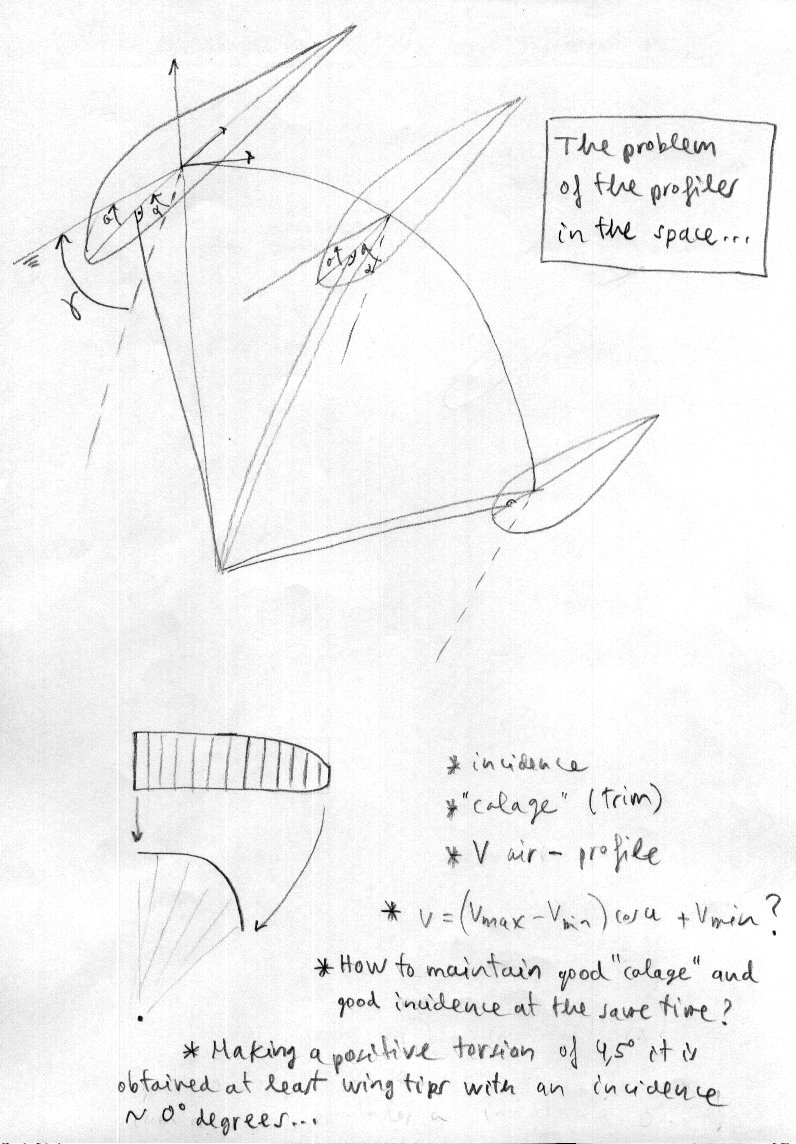 The problem
of the profiles
in the space...
γ
* incidence
* "calage" (trim)
* V air - profile
* V = (Vmax - Vmin) cos α + Vmin ?
* How to maintain good "calage" and
good incidence at the same time?
* Making a positive torsion of 4,5° it is
obtained at least wing tips with an incidence
~ 0° degrees...